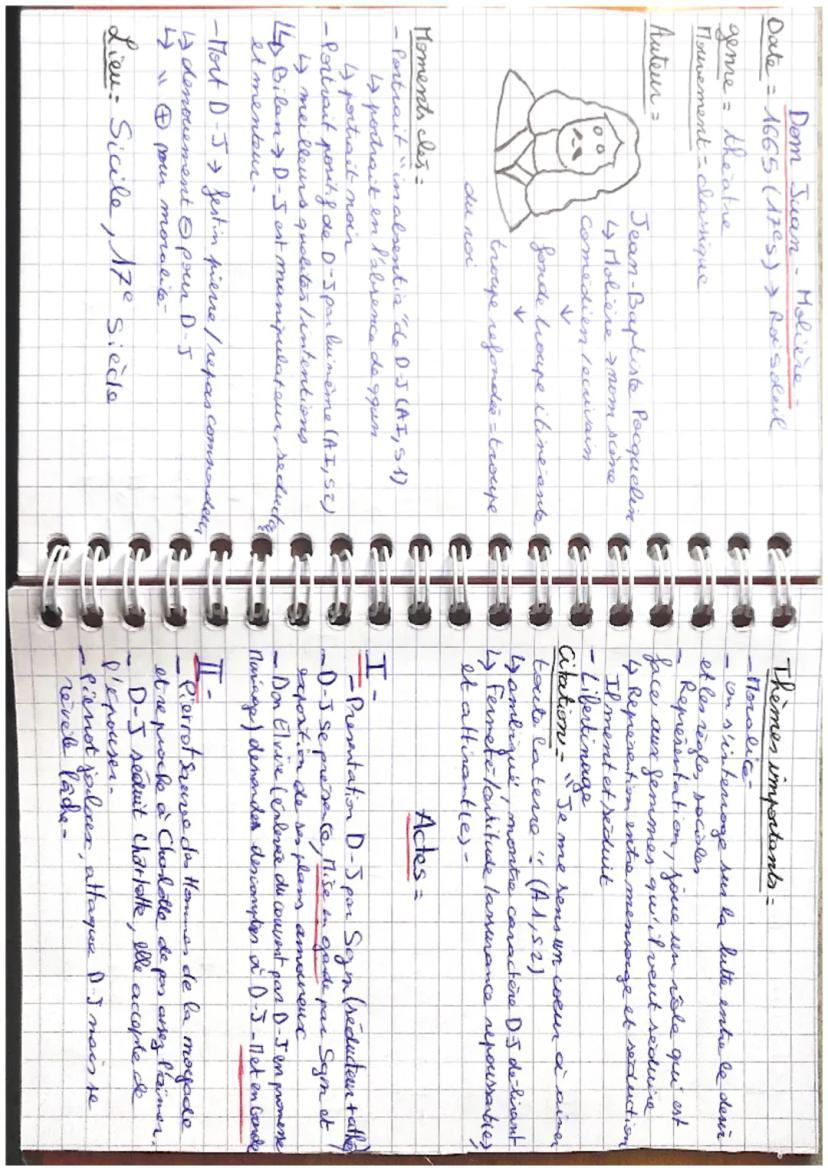 Dom Juan - Molière -
Date = 1665 (17e s) → Roi soleil
genre = théâtre
Mouvement = classique
Auteur =
Jean-Baptiste Pocquelin
↳ Molière → nom scène
comédien / écrivain
↓
fonde troupe itinérante
↓
troupe refondée = troupe
du roi
Moments clés =
- Portrait "in absentia" de D-J (AI, S1)
↳ portrait en l'absence de qqun
↳ portrait noir
- Portrait positif de D-J par lui même (AI, S2)
↳ meilleurs qualités / intentions
↳ Bilan → D-J est manipulateur, séducteur
et menteur -
- Mort D-J → festin pierre / repas commandeur
↳ dénouement ⊖ pour D-J
↳ " ⊕ pour moralité -
Lieu = Sicile, 17e siècle
Thèmes importants =
- Moralité -
- on s'interroge sur la lutte entre le désir
et les règles sociales
- Représentation, joue un rôle qui est
face aux femmes qu'il veut séduire
↳ Représentation entre mensonge et séduction
Il ment et séduit
- Libertinage
Citation = "Je me sens un coeur à aimer
toute la terre" (A1, S2)
↳ ambiguë, montre caractère D-J délirant
↳ Fermeté / certitude / assurance repoussant(e)
et attirant(e) -
Actes =
I -
- Présentation D-J par Sgn (séducteur + athée)
- D-J se présente, Mise en garde par Sgn et
exposition de ses plans amoureux
- Don Elvire (enlevée du couvent par D-J en promesse
mariage) demande des comptes à D-J - Met en garde
II -
- Pierrot sauve des Hommes de la noyade
et reproche à Charlotte de pas assez l'aimer.
- D-J séduit Charlotte, elle accepte de
l'épouser -
- Pierrot jaloux, attaque D-J mais se
révèle lâche -